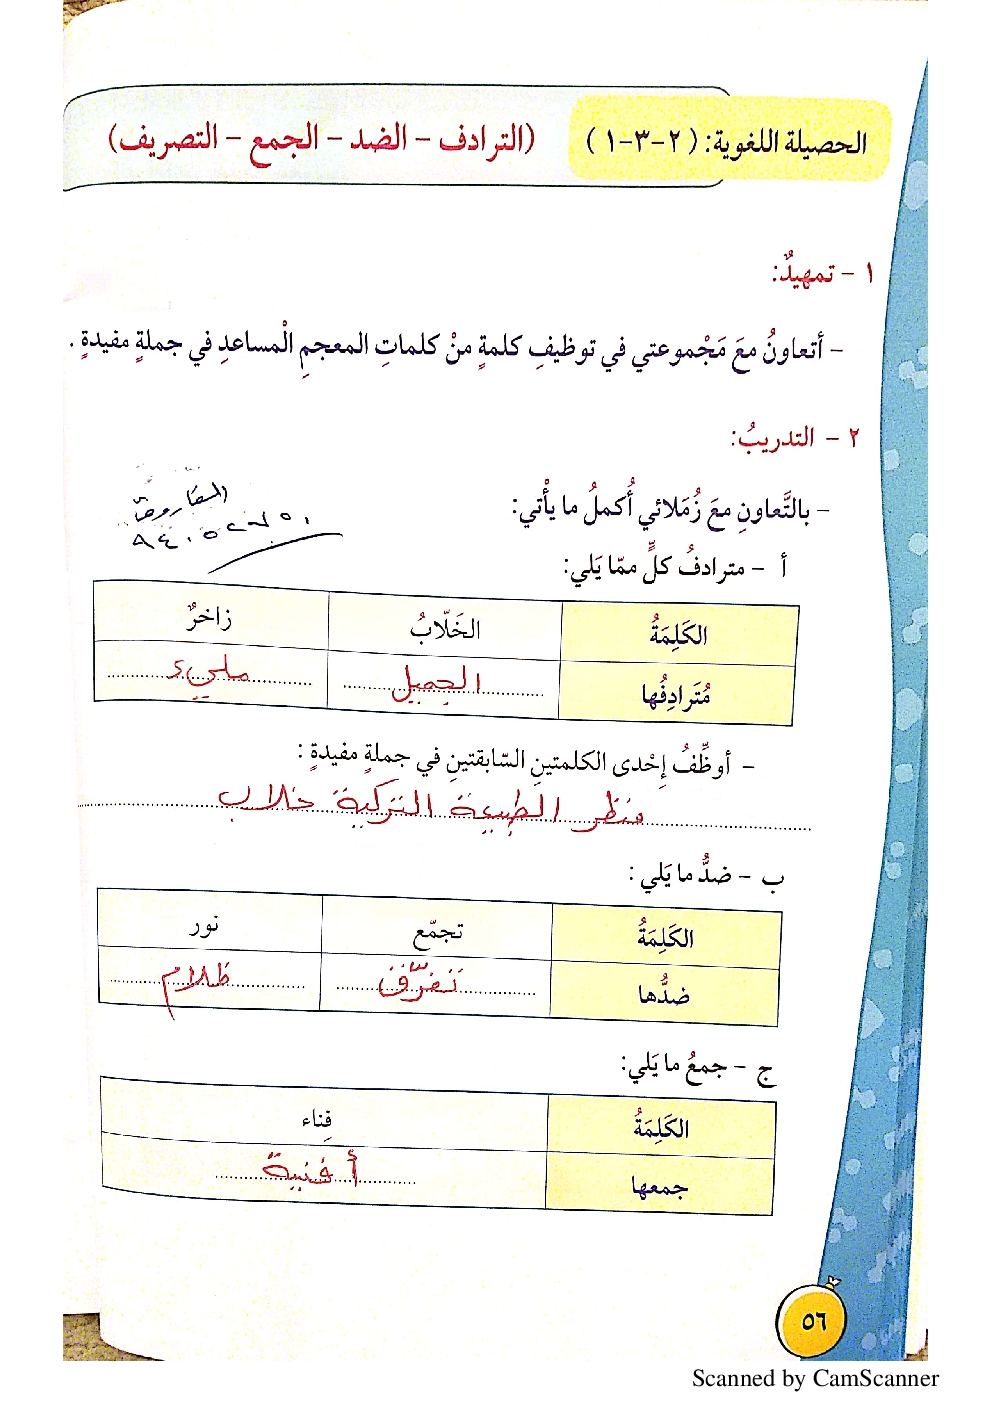 الحصيلة اللغوية: (٢-٣-١) (الترادف - الضد - الجمع - التصريف)
١ - تمهيدٌ:
- أتعاونُ معَ مَجْموعتي في توظيفِ كلمةٍ منْ كلماتِ المعجمِ الْمساعدِ في جملةٍ مفيدةٍ .
٢ - التدريبُ:
- بالتَّعاونِ معَ زُملائي أُكملُ ما يأْتي:
أ - مترادفُ كلٍّ ممّا يَلي:
الكَلِمَةُ الخَلّابُ زاخرٌ
مُتَرادِفُها الجميل مليء
- أوظِّفُ إحْدى الكلمتينِ السّابقتينِ في جملةٍ مفيدةٍ :
منظر الطبيعة التركية خلاب
ب - ضدُّ ما يَلي :
الكَلِمَةُ تجمّع نور
ضدُّها تفرّق ظلام
ج - جمعُ ما يَلي:
الكَلِمَةُ فِناء
جمعها أفنية
٥٦
Scanned by CamScanner